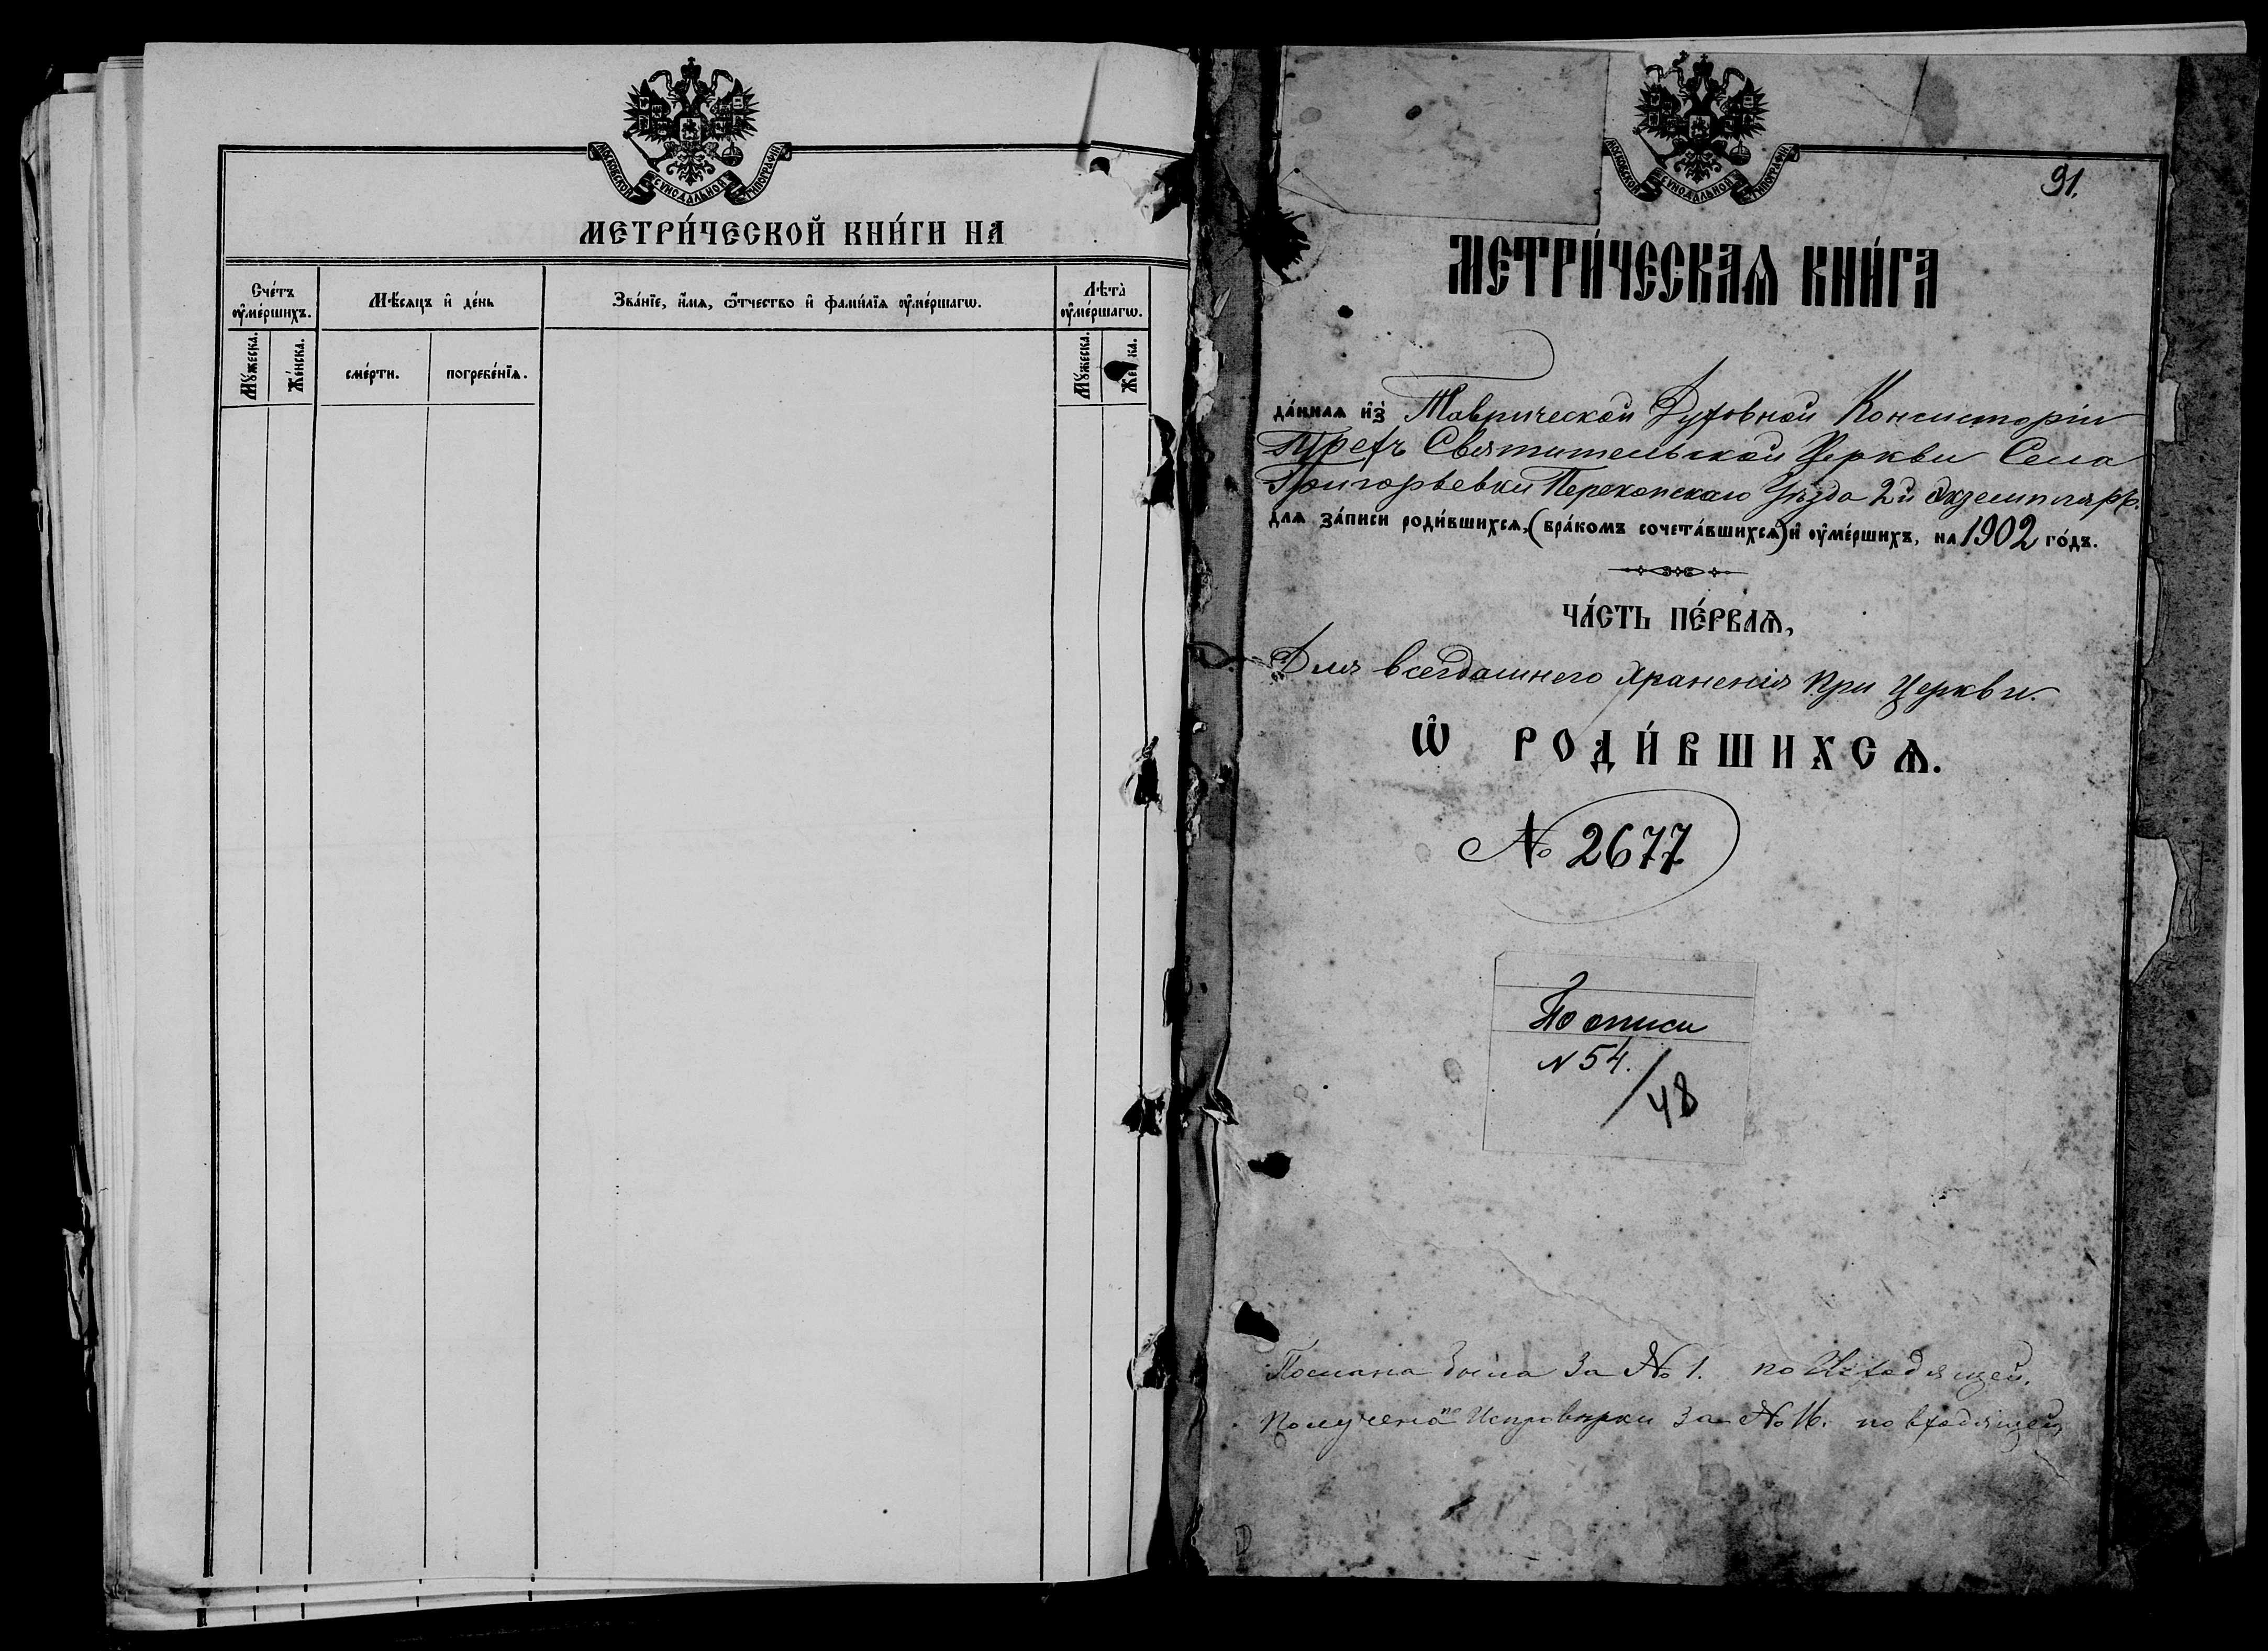 МОСКОВСКОЙ СѴНОДАЛЬНОЙ ТИПОГРАФІИ.
МЕТРИ́ЧЕСКОЙ КНИ́ГИ НА
Сче́тъ ᲂу҆ме́ршихъ.
Мѣ́сяцъ и҆ де́нь
Зва́нїе, и҆́мѧ, ѻ҆́тчество и҆ фами́лїѧ ᲂу҆ме́ршагѡ.
Лѣта̀ ᲂу҆ме́ршагѡ.
Мꙋ́жеска.
Же́нска.
сме́рти.
погребе́нїѧ.
Мꙋ́жеска.
МОСКОВСКОЙ СѴНОДАЛЬНОЙ ТИПОГРАФІИ.
91.
МЕТРИ́ЧЕСКАѦ КНИ́ГА
да́ннаѧ и҆з̾ Таврической Духовной Консисторіи
Трехъ Святительской Церкви Села
Григорьевки Перекопскаго Уѣзда 2й Экземпляръ.
длѧ за́писи роди́вшихсѧ, (бра́комъ сочета́вшихсѧ) и҆ ᲂу҆ме́ршихъ, на 1902 го́дъ.
ЧА́СТЬ ПЕ́РВАѦ,
Для всегдашнего храненія при Церкви.
Ѡ҆ РОДИ́ВШИХСѦ.
№ 2677
По описи
N 54.
/48
Послана была за № 1. по Исходящей.
Получена по Исправки за № 16. по входящей